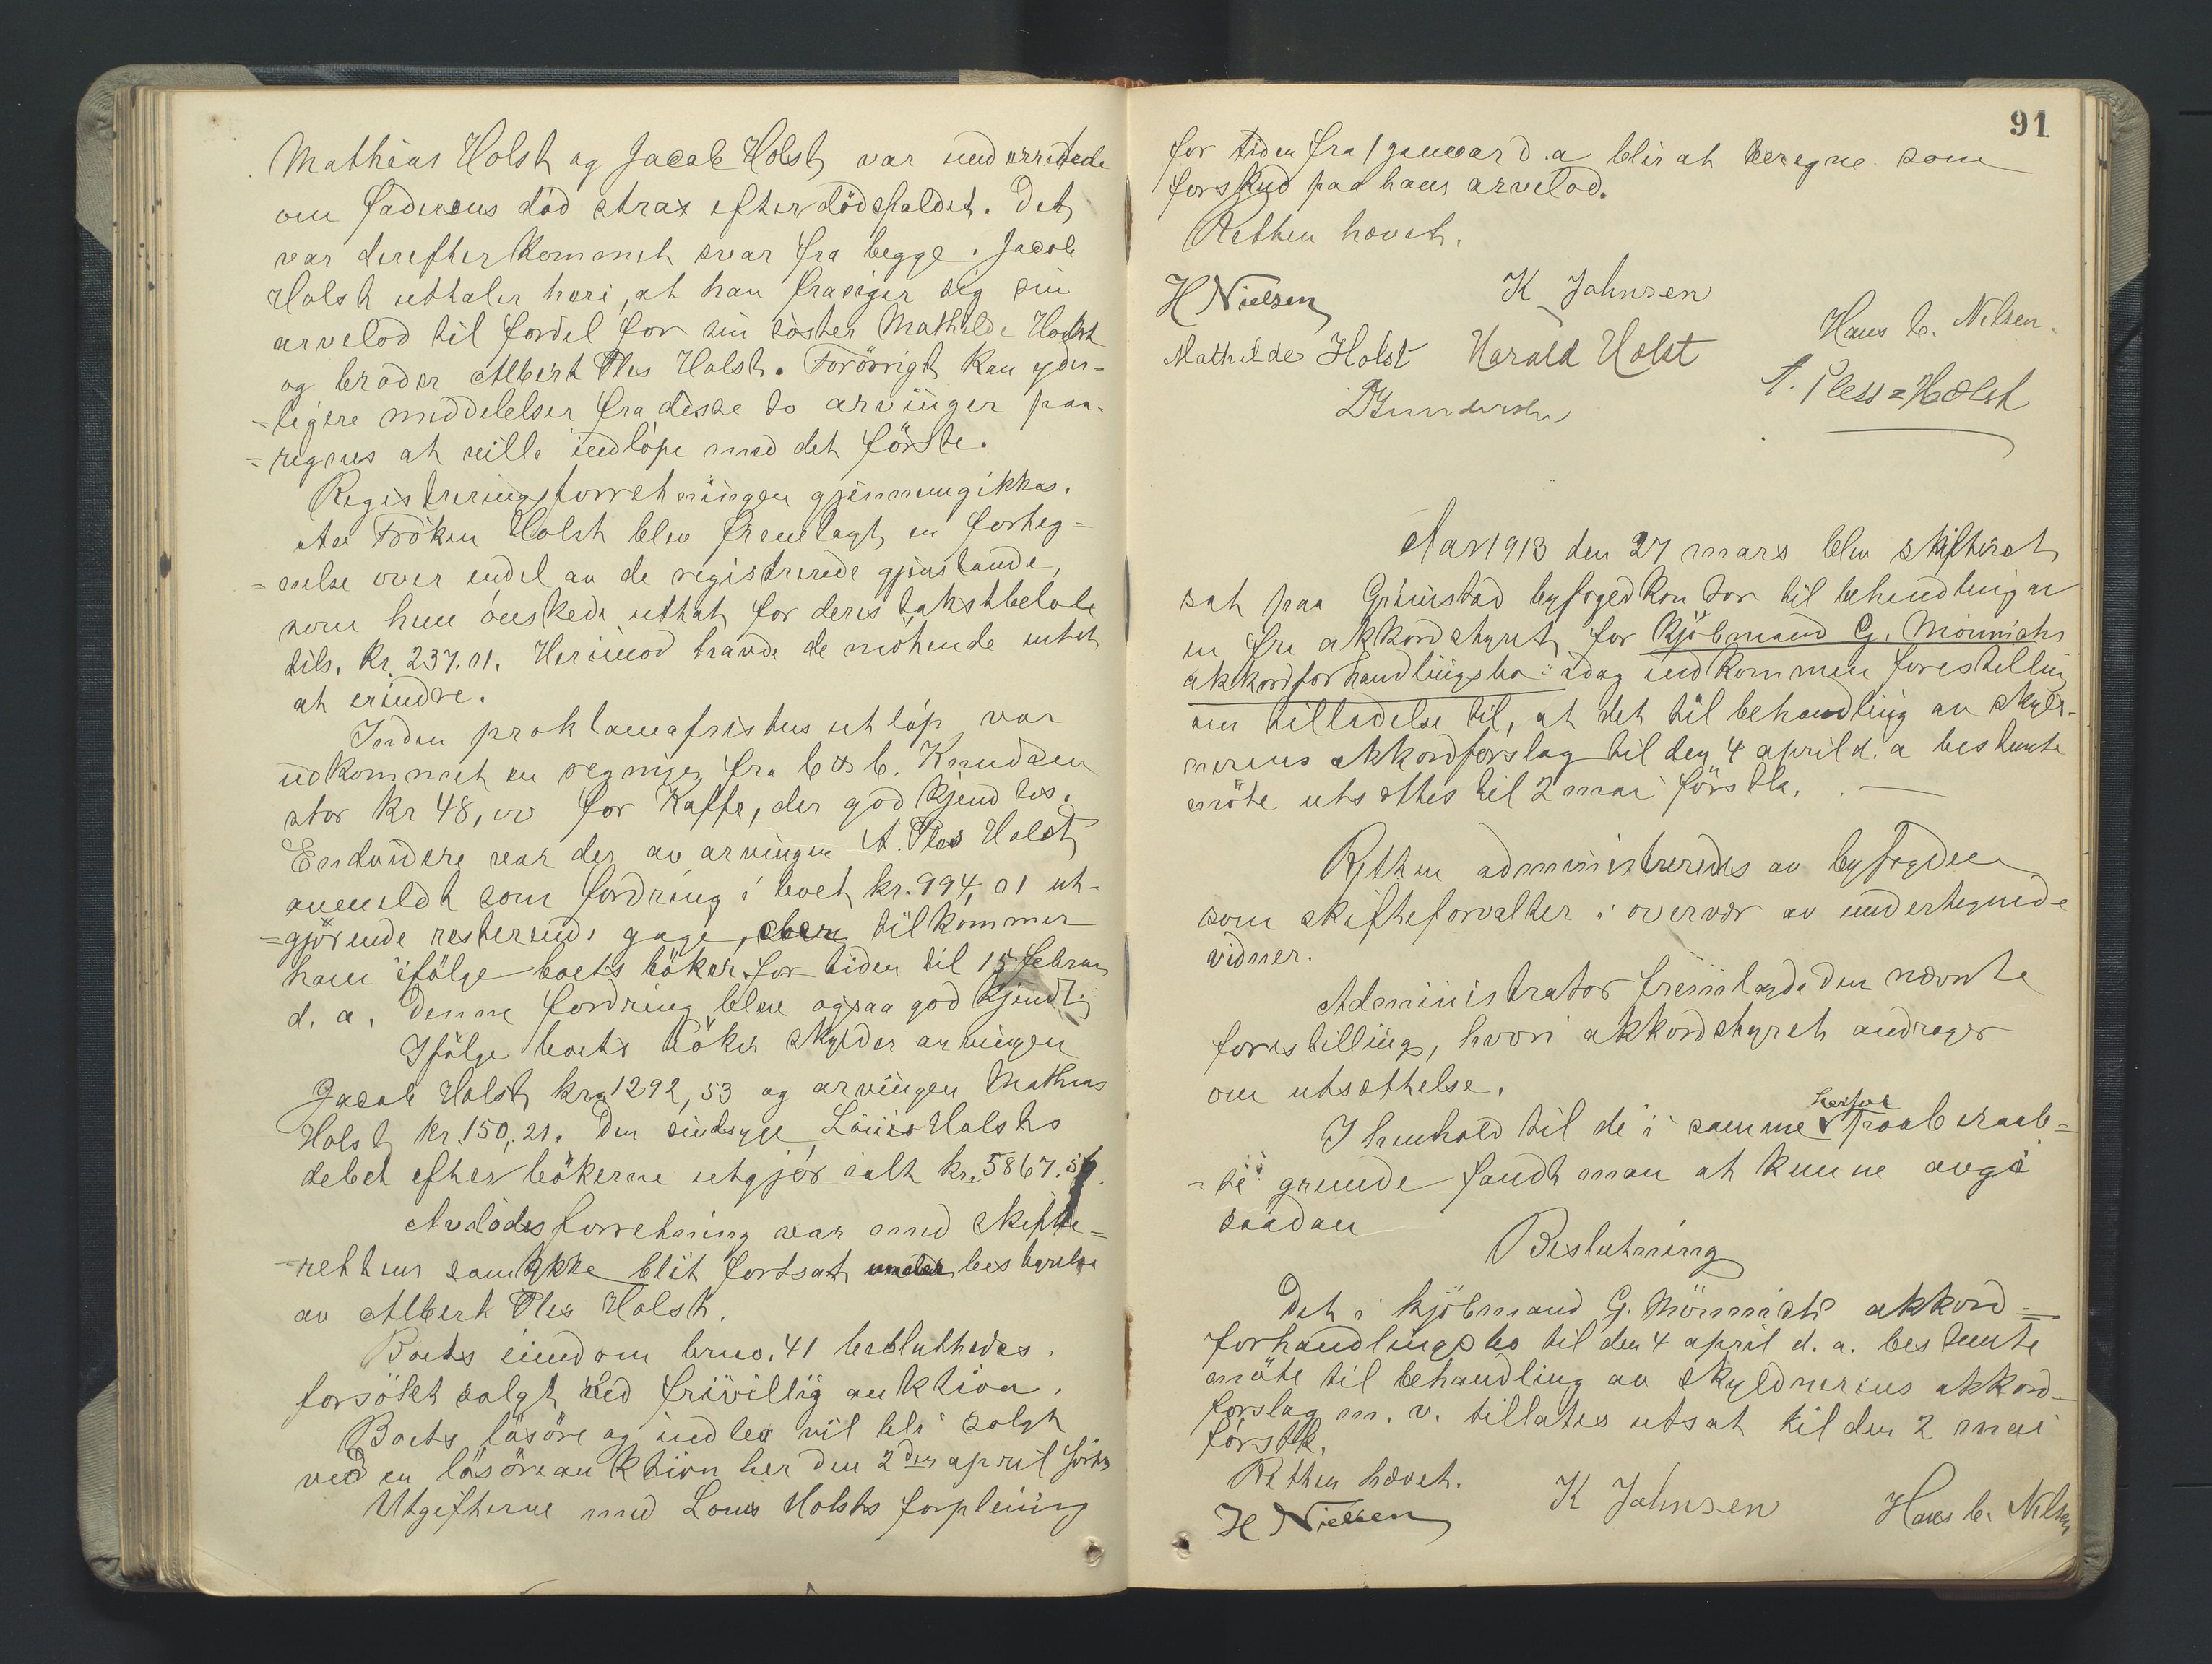 Mathias Holst og Jacob Holst var underrettede
om faderens død strax efter dödsfaldet. Det
var derefter kommet svar fra begge. Jacob
Holst uttaler heri, at han frasiger sig sin
arvelod til fordel for sin söster Mathilde Holst
og broder Albert Ples Holst. Forövrigt kan yder-
=ligere meddelelser fra disse to arvinger paa-
=regnes at ville indlöpe med det förste.
Registreringsforretningen gjennemgikkes.
Av Fröken Holst blev fremlagt en forteg=
=nelse over endel av de registrerede gjenstande,
som hun önskede uttat for deres takstbelöb
tils. kr. 237.01. Herimod havde de mötende intet
at erindre.
Inden proklamafristens utlöp var
indkommet en regning fra C & C. Knudsen
stor kr 48,00 for Kaffe, der godkjendtes.
Endvidere var der av arvingen A. Ples Holst
anmeldt som fordring i boet kr. 994,01 ut-
=gjörende resterende gage, der tilkommer
ham ifölge boets böker for tiden til 15 februar
d. a. Denne fordring blev ogsaa godkjendt.
Ifölge boets böker skylder arvingen
Jacob Holst kr. 1292,53 og arvingen Mathias
Holst kr. 150,21. Den sindsyge Louis Holsts
debet efter bökerne utgjör ialt kr. 5867.56.
Avdödes forretning var med skifte=
=rettens samtykke blit fortsat under bestyrelse
av Albert Ples Holst.
Boets eiendom brno. 41 besluttedes
forsökt solgt ved frivillig auktion.
Boets lösöre og indbo vil bli solgt
ved en lösöreauktion her den 2den april förstk.
Utgifterne med Louis Holsts forpleining
91
for tiden fra 1 januar d. a blir at beregne som
forskud paa hans arvelod.
Retten hævet.
H Nielsen K Johnsen Hans C. Nilsen.
Mathilde Holst Harald Holst A. Pless=Holst
D Gundersen
Aar 1913 den 27 mars blev skifteret
sat paa Grimstad byfogedkontor til behandling av
en fra akkordstyret for Kjöbmand G. Mönnichs
akkordforhandlingsbo idag indkommen forestilling
om tilladelse til, at det til behandling av skyld-
nerens akkordforslag til den 4 april d. a bestemte
möte utsættes til 2 mai förstk.
Retten administreredes av byfogden
som skifteforvalter i overvær av undertegnede
vidner.
Administrator fremlagde den nævnte
forestilling, hvori akkordstyret andrager
om utsættelse.
I henhold til de i samme herfor paaberaab=
=te grunde fandt man at kunne avgi
saadan
Beslutning
Det i kjöbmand G. Mönnichs akkord=
forhandlingsbo til den 4 april d. a. bestemte
möte til behandling av skyldnerens akkord-
forslag m. v. tillates utsat til den 2 mai
förstk.
Retten hævet.
H Nielsen K Johnsen Hans C. Nilsen